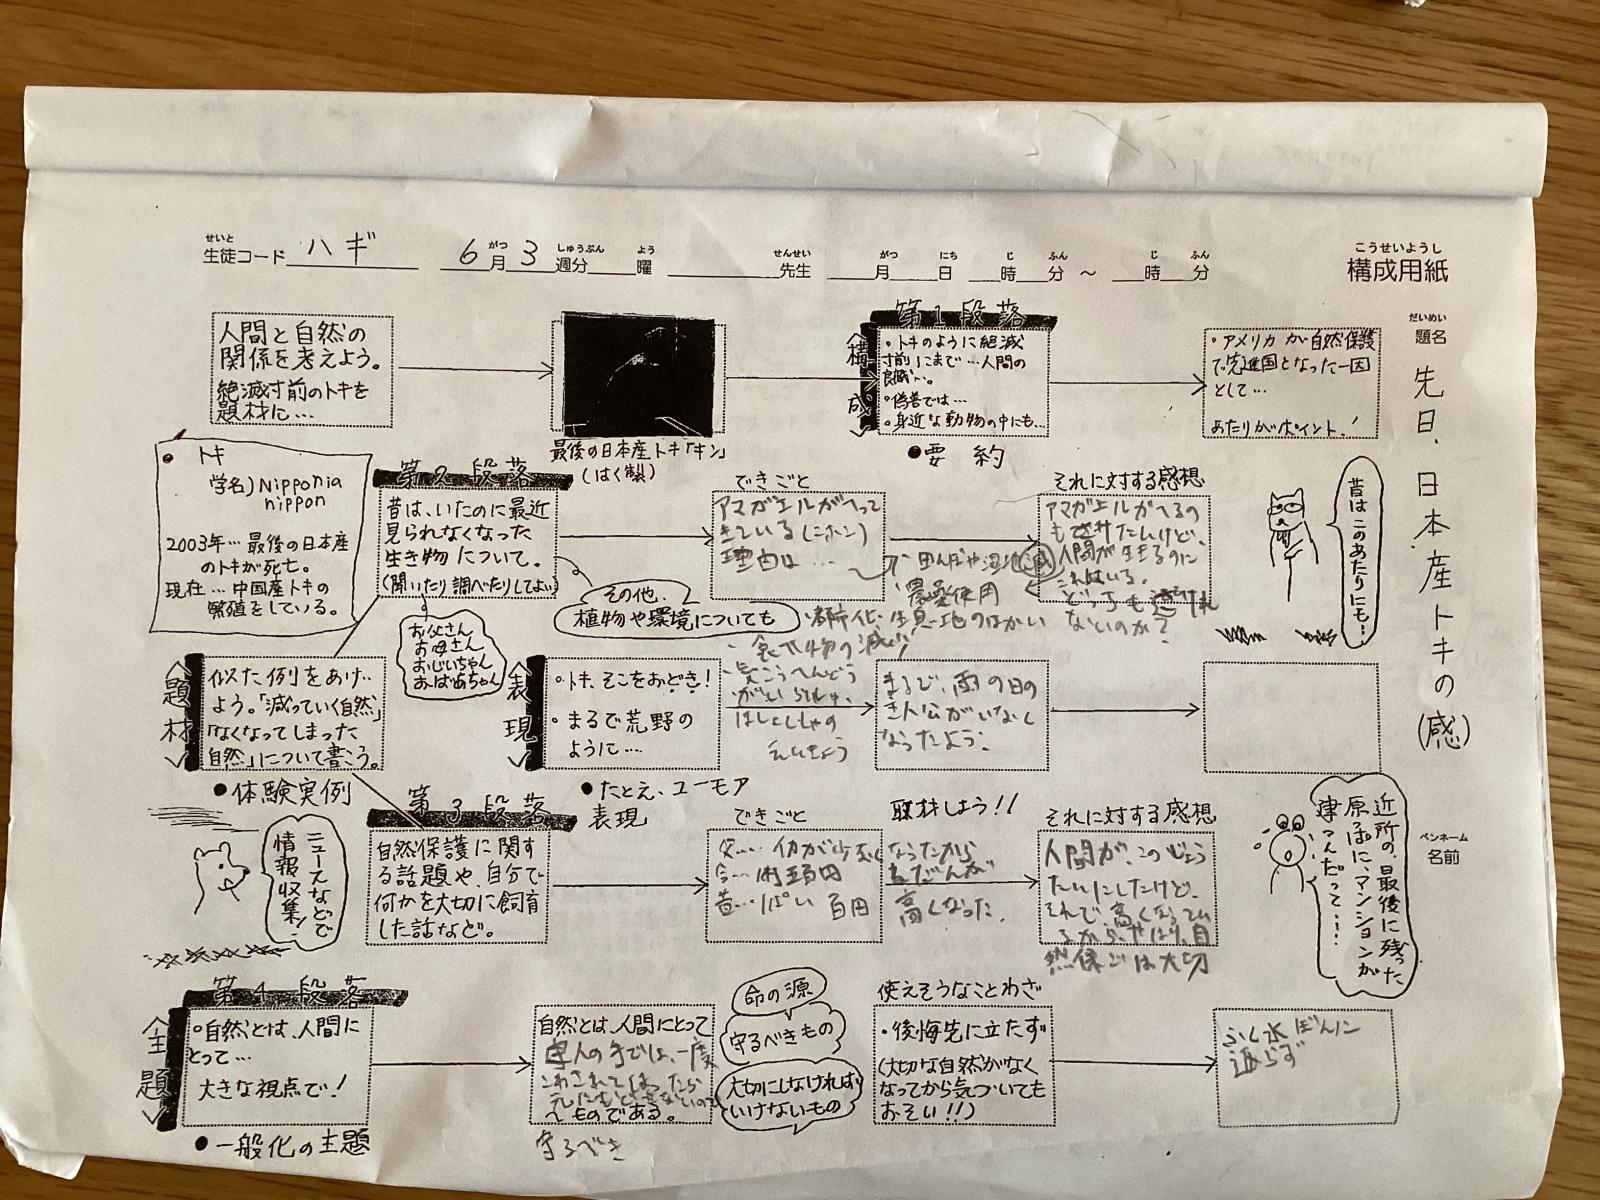 こうせいようし
構成用紙
せいと がつ しゅうぶん よう せんせい がつ にち じ ふん じ ふん
生徒コード ハギ 6月3週分 曜 先生 月 日 時 分 〜 時 分
だいめい
題名
先日、日本産トキの(感)
ペンネーム
名前
人間と自然の
関係を考えよう。
絶滅寸前のトキを
題材に…
最後の日本産トキ「キン」
(はく製)
第1段落
<構成>
・トキのように絶滅
寸前にまで…人間の
良識…。
・偽善では…
・身近な動物の中にも…
●要約
・アメリカが自然保護
で先進国となった一因
として…
あたりがポイント!
トキ
学名)Nipponia
nippon
2003年…最後の日本産
のトキが死亡。
現在…中国産トキの
繁殖をしている。
第2段落
昔は、いたのに最近
見られなくなった
生き物について。
(聞いたり調べたりしてよい)
その他、
植物や環境についても
お父さん
お母さん
おじいちゃん
おばあちゃん
できごと
アマガエルがへって
きている(ニホン)
理由は…
・田んぼや湿地減
・農薬使用
・都市化・生息地のはかい
・食べ物の減少
・気こうへんどう
がいらいしゅ
えいきょう
それに対する感想
アマガエルがへるの
も
人間が生きるのに
これはいる。
どっちも
ないのか?
昔はこのあたりにも…
<題材>
似た例をあげ
よう。「減っていく自然」
「なくなってしまった
自然」について書こう。
●体験実例
<表現>
・トキ、そこをおどき!
・まるで荒野の
ように…
●たとえ、ユーモア
表現
まるで、雨の日の
主人公がいなく
なったよう。
ニュースなどで
情報収集!
第3段落
自然保護に関す
る話題や、自分で
何かを大切に飼育
した話など。
できごと
イカが少なくなったから
ねだんが
高くなった。
今…
昔… 百円
取材しよう!!
それに対する感想
人間が、このじょう
たいにしたけど、
それで、高くなってい
るから、やはり、自
然保ごは大切
近所の、最後に残った
原っぱに、マンションが
建つんだって……
第4段落
<主題>
・自然とは、人間に
とって…
大きな視点で!
●一般化の主題
自然とは、人間にとって
人の手では、一度
こわされてしまったら
元にもどせないので
〜ものである。
守るべき
命の源
守るべきもの
大切にしなければ
いけないもの
使えそうなことわざ
・後悔先に立たず
(大切な自然がなく
なってから気づいても
おそい!!)
ふく水ぼんに
返らず